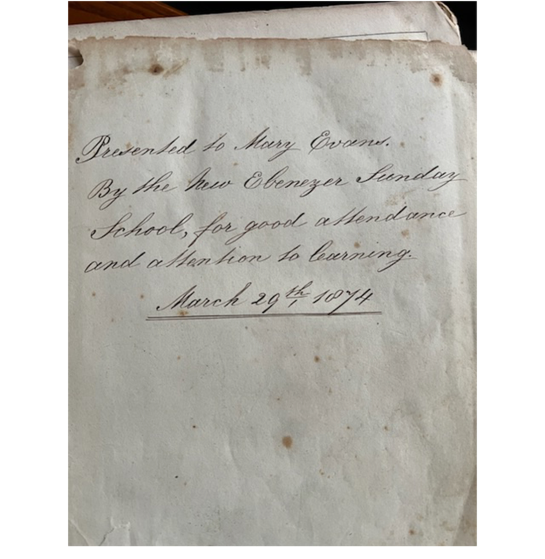 Presented to Mary Evans.
By the New Ebenezer Sunday
School, for good attendance
and attention to learning.
March 29th, 1874